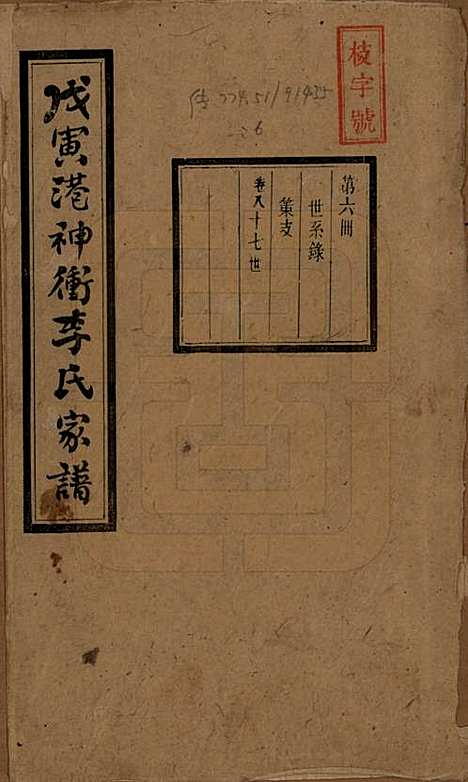 枝字號
第六冊
世系錄
策支
卷八十七世
戊寅港神衝李氏家譜